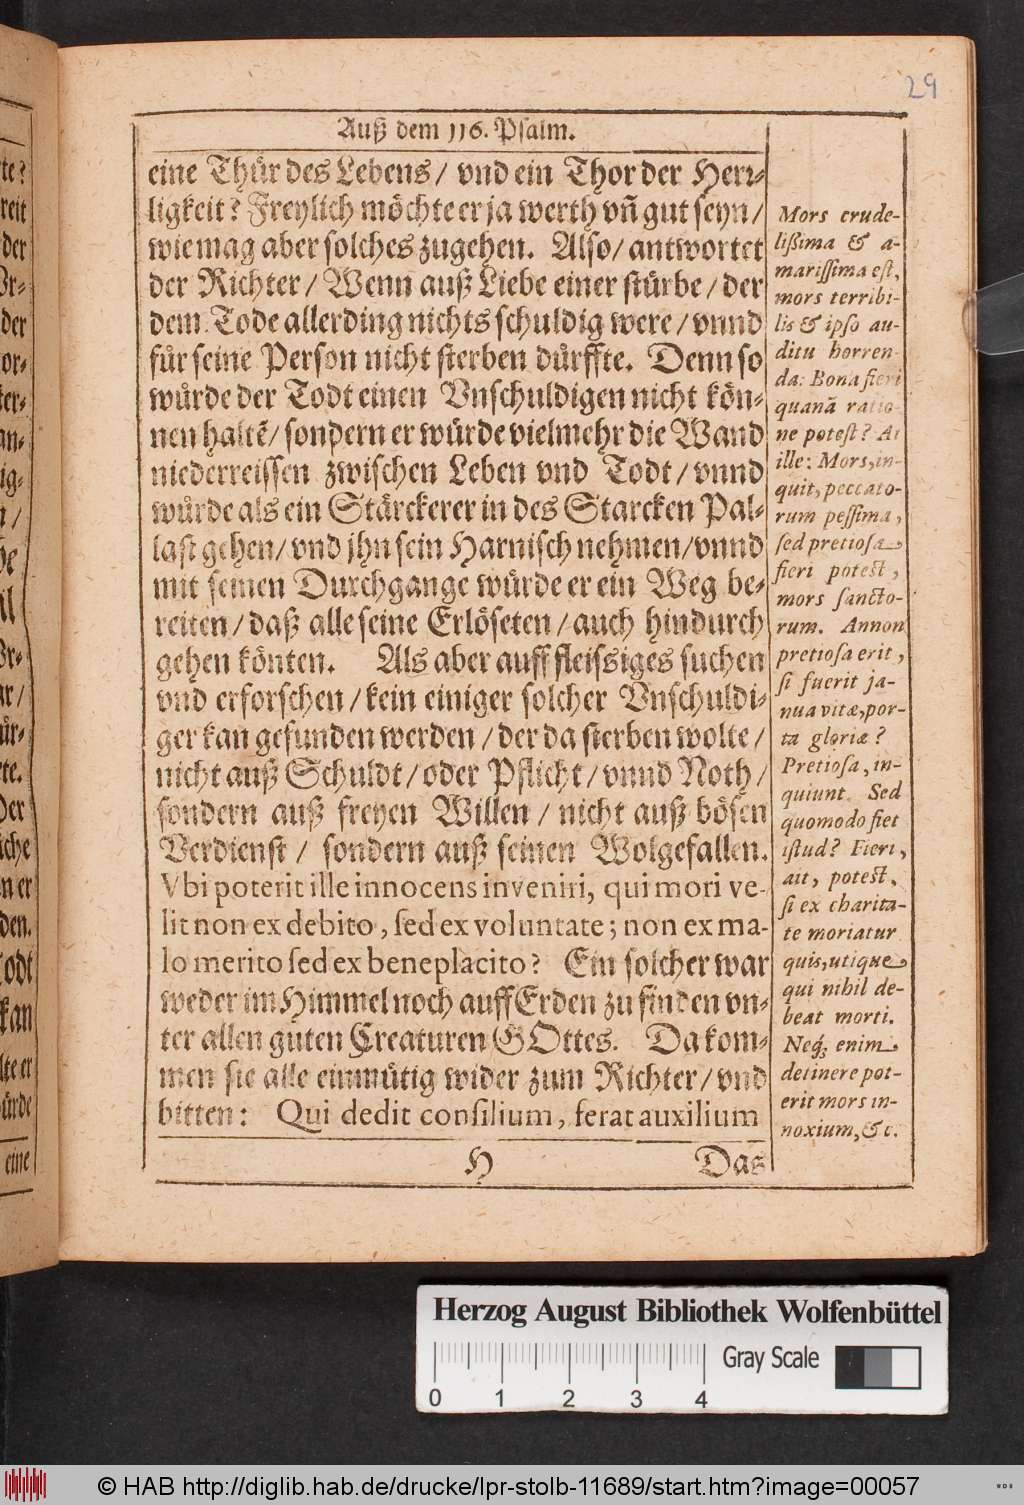 29
Auß dem 116. Psalm.
eine Thür des Lebens / vnd ein Thor der Herr-
ligkeit? Freylich möchte er ja werth vñ gut seyn /
wie mag aber solches zugehen. Also / antwortet
der Richter / Wenn auß Liebe einer stürbe / der
dem Tode allerding nichts schuldig were / vnnd
für seine Person nicht sterben dürffte. Denn so
würde der Todt einen Vnschuldigen nicht kön-
nen haltẽ / sondern er würde vielmehr die Wand
niederreissen zwischen Leben vnd Todt / vnnd
würde als ein Stärckerer in des Starcken Pal-
last gehen / vnd jhn sein Harnisch nehmen / vnnd
mit seinen Durchgange würde er ein Weg be-
reiten / daß alle seine Erlöseten / auch hindurch
gehen könten. Als aber auff fleissiges suchen
vnd erforschen / kein einiger solcher Vnschuldi-
ger kan gefunden werden / der da sterben wolte /
nicht auß Schuldt / oder Pflicht / vnnd Noth /
sondern auß freyen Willen / nicht auß bösen
Verdienst / sondern auß seinen Wolgefallen.
Vbi poterit ille innocens inveniri, qui mori ve-
lit non ex debito, sed ex voluntate; non ex ma-
lo merito sed ex beneplacito? Ein solcher war
weder im Himmel noch auff Erden zu finden vn-
ter allen guten Creaturen GOttes. Da kom-
men sie alle einmütig wider zum Richter / vnd
bitten: Qui dedit consilium, ferat auxilium
H Das
Mors crude-
lißima & a-
marissima est,
mors terribi-
lis & ipso au-
ditu horren-
da: Bona fieri
quanã ratio-
ne potest? At
ille: Mors, in-
quit, peccato-
rum pessima,
sed pretiosa
fieri potest,
mors sancto-
rum. Annon
pretiosa erit,
si fuerit ja-
nua vitæ, por-
ta gloriæ?
Pretiosa, in-
quiunt. Sed
quomodo fiet
istud? Fieri,
ait, potest,
si ex charita-
te moriatur
quis, utique
qui nihil de-
beat morti.
Neq; enim
detinere pot-
erit mors in-
noxium, &c.
eine
Herzog August Bibliothek Wolfenbüttel
Gray Scale
0 1 2 3 4
© HAB http://diglib.hab.de/drucke/lpr-stolb-11689/start.htm?image=00057